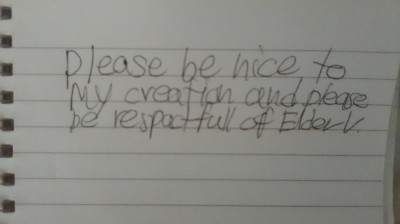 Please be nice to
My creation and please
be respactfull of Elder V.